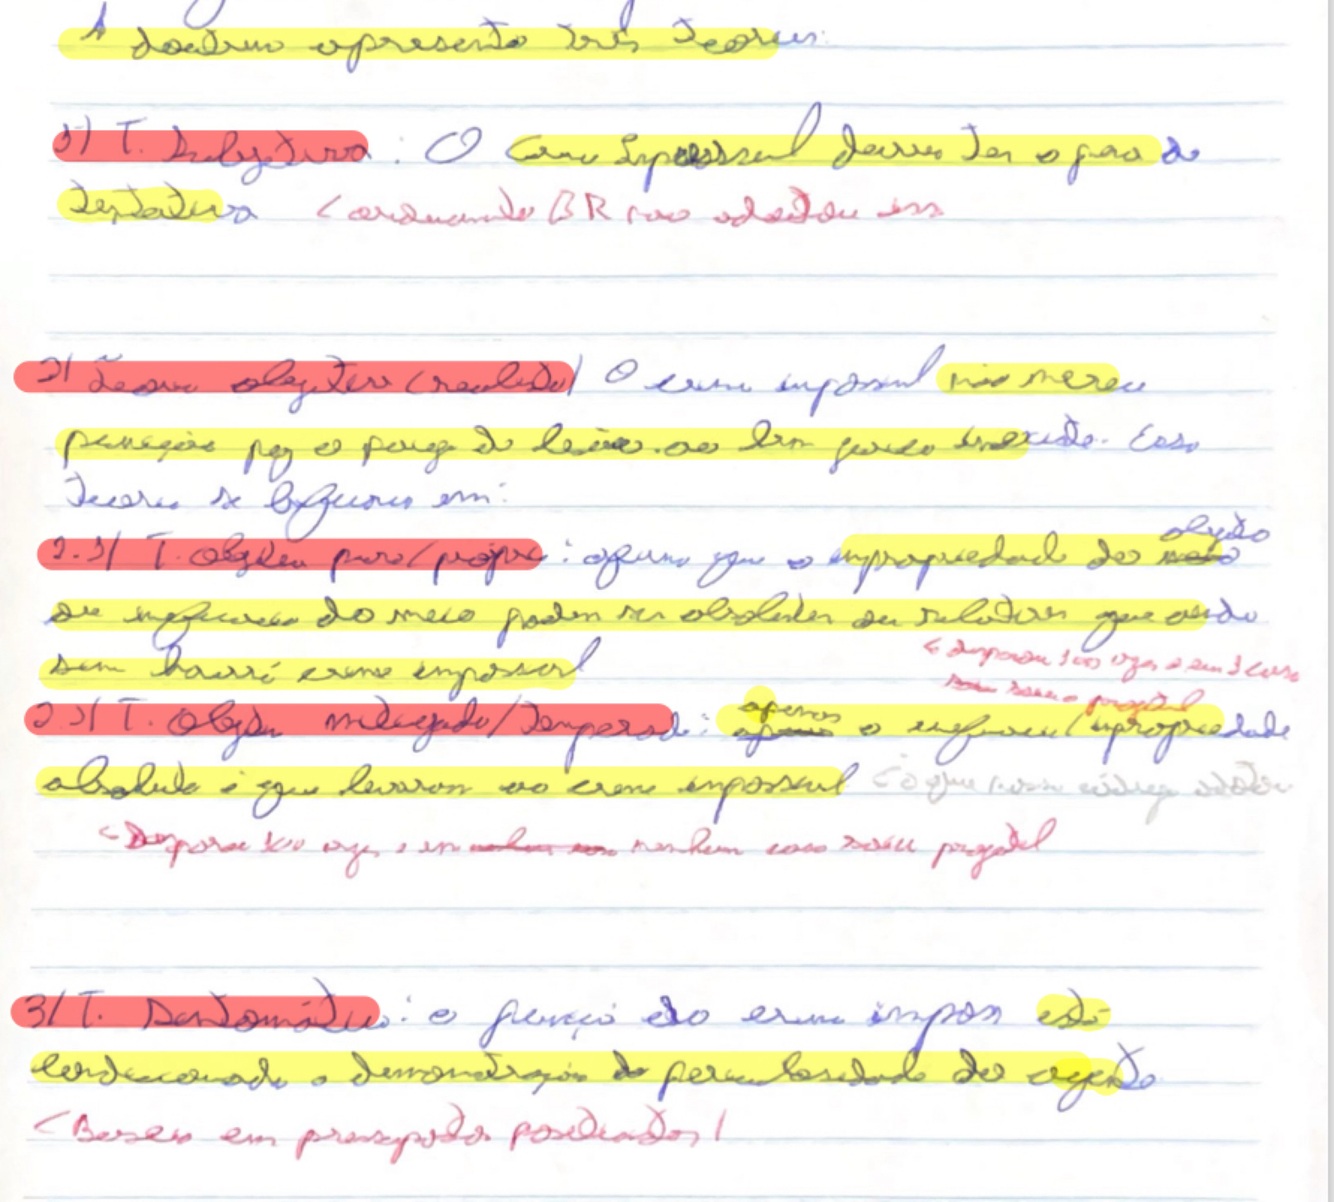 A doutrina apresenta três teorias:
1) T. Subjetiva: O crime impossível deveria ter a pena da
tentativa <ordenamento BR não adotou essa
2) Teoria objetiva (realista) O crime impossível não merece
punição pq o perigo de lesão ao bem jurídico inexiste. Essa
teoria se bifurca em:
2.1) T. objetiva pura/própria: afirma que a impropriedade do objeto
ou ineficácia do meio podem ser absolutas ou relativas que ainda
assim haverá crime impossível
< disparou 100 vezes e em 1 caso
saiu o projétil
2.2) T. Objetiva mitigada/temperada: apenas a ineficácia/impropriedade
absoluta é que levaram ao crime impossível < o que nosso código adotou
< Disparou 100 vezes e em nenhum caso saiu projétil
3) T. Sintomática: a punição do crime imposs está
condicionada a demonstração da periculosidade do agente
< Baseia em pressupostos positivados)